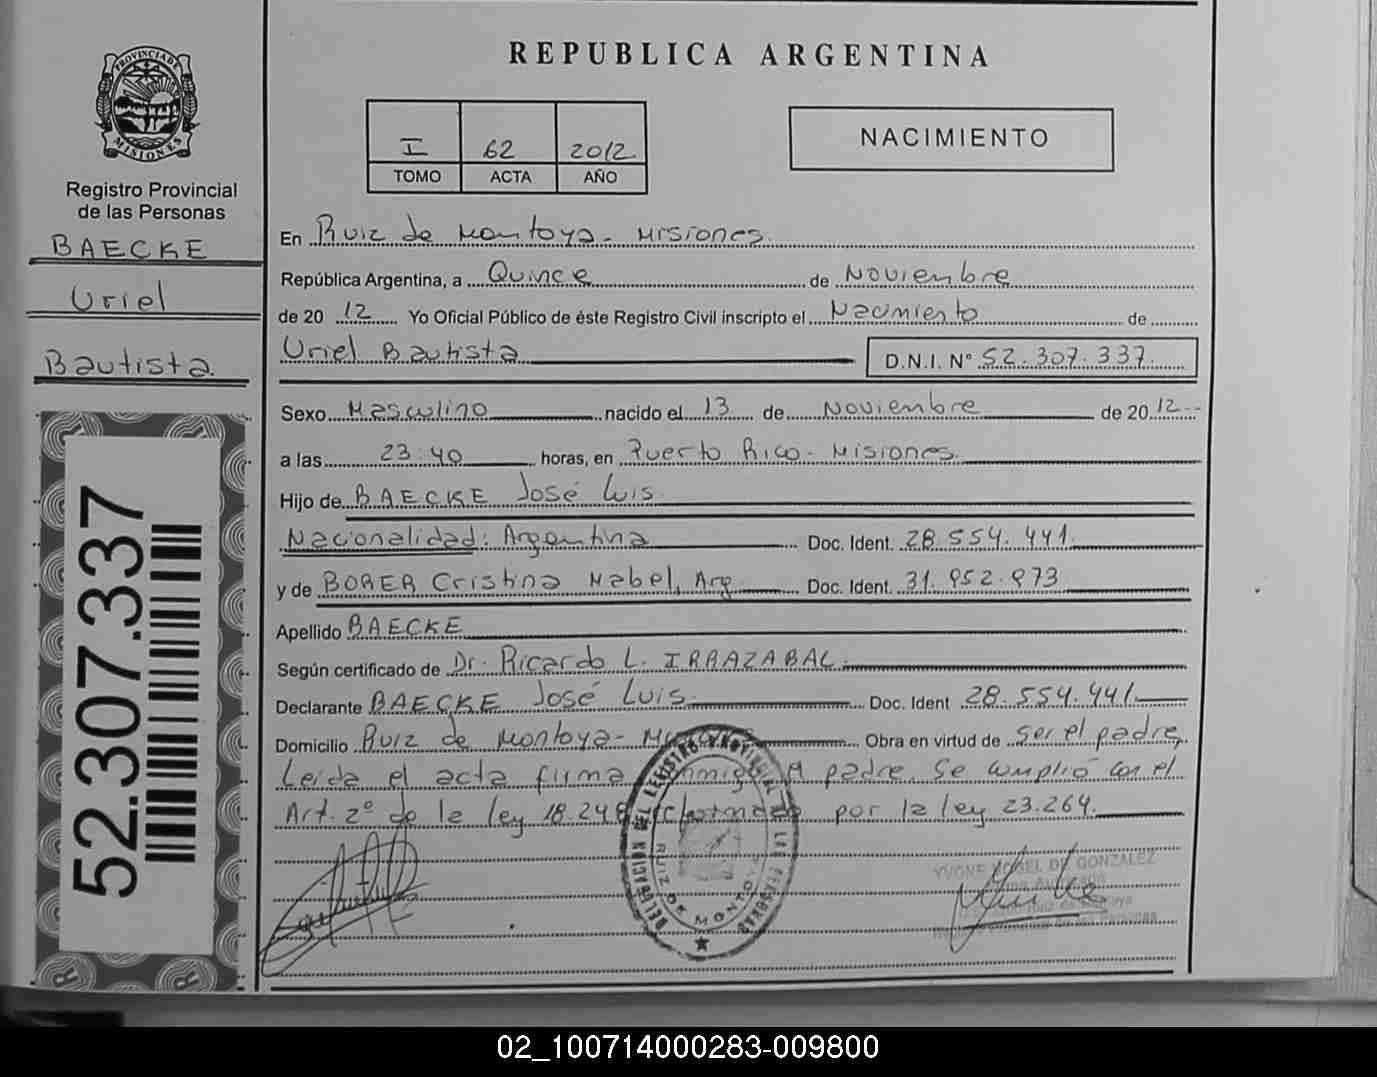 PROVINCIA DE
MISIONES
Registro Provincial
de las Personas
BAECKE
Uriel
Bautista
52.307.337
REPUBLICA ARGENTINA
I 62 2012
TOMO ACTA AÑO
NACIMIENTO
En Ruiz de Montoya - Misiones.
República Argentina, a Quince de Noviembre
de 20 12 Yo Oficial Público de éste Registro Civil inscripto el Nacimiento de
Uriel Bautista D.N.I. N° 52.307.337.
Sexo Masculino nacido el 13 de Noviembre de 20 12
a las 23:40 horas, en Puerto Rico - Misiones.
Hijo de BAECKE José Luis.
Nacionalidad: Argentina Doc. Ident. 28.554.441
y de BORER Cristina Mabel, Arg. Doc. Ident. 31.952.973
Apellido BAECKE
Según certificado de Dr. Ricardo L. IRRAZABAL.
Declarante BAECKE José Luis. Doc. Ident 28.554.441
Domicilio Ruiz de Montoya - Obra en virtud de ser el padre,
Leida el acta firma conmigo el padre. Se cumplió con el
Art. 2º de la ley 18.248 reformado por la ley 23.264.
DELEGACION DEL REGISTRO PROVINCIAL DE LAS PERSONAS
RUIZ DE MONTOYA
YVONE NOBEL DE GONZALEZ
02_100714000283-009800